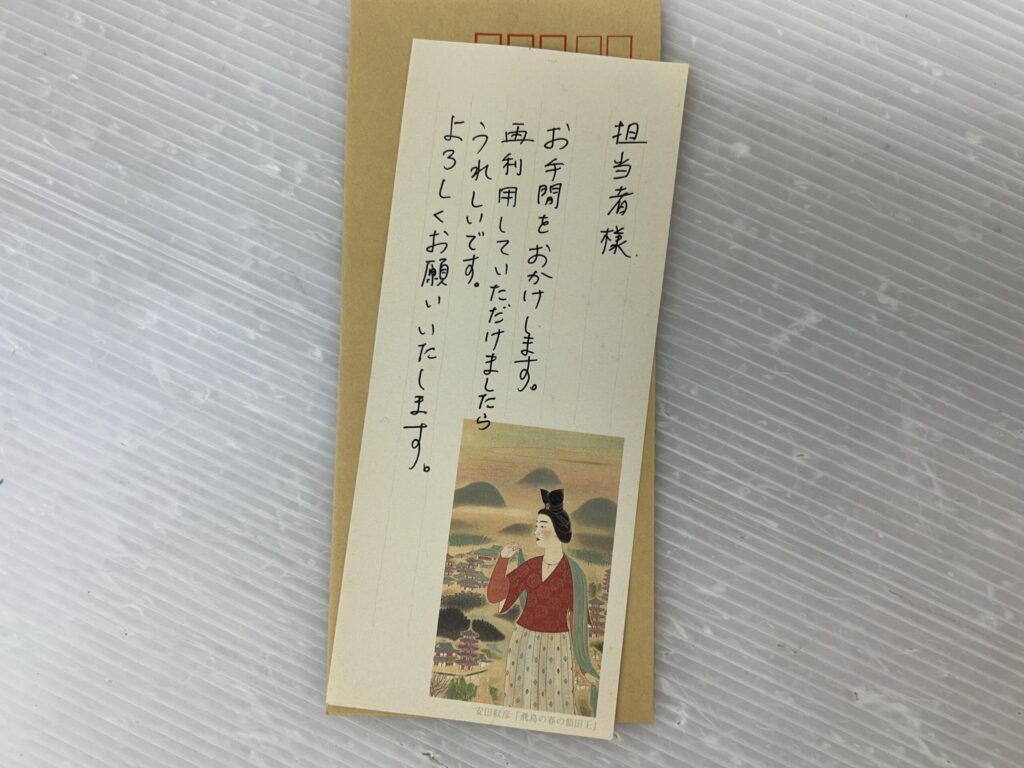 担当者様
お手間をおかけします。
再利用していただけましたら
うれしいです。
よろしくお願いいたします。
安田靫彦「飛鳥の春の額田王」